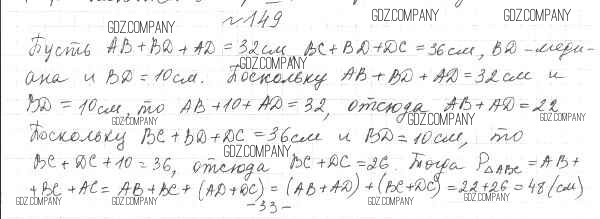 №149
GDZ.COMPANY GDZ.COMPANY GDZ.COMPANY
Пусть AB+BD+AD=32см BC+BD+DC=36см, BD-меди-
GDZ.COMPANY
ана и BD=10см. Поскольку AB+BD+AD=32см и
BD=10см, то AB+10+AD=32, отсюда AB+AD=22
GDZ.COMPANY GDZ.COMPANY GDZ.COMPANY
Поскольку BC+BD+DC=36см и BD=10см, то
GDZ.COMPANY
BC+DC+10=36, отсюда BC+DC=26. Тогда P△ABC=AB+
+BC+AC=AB+BC+(AD+DC)=(AB+AD)+(BC+DC)=22+26=48(см)
GDZ.COMPANY GDZ.COMPANY GDZ.COMPANY
-33-